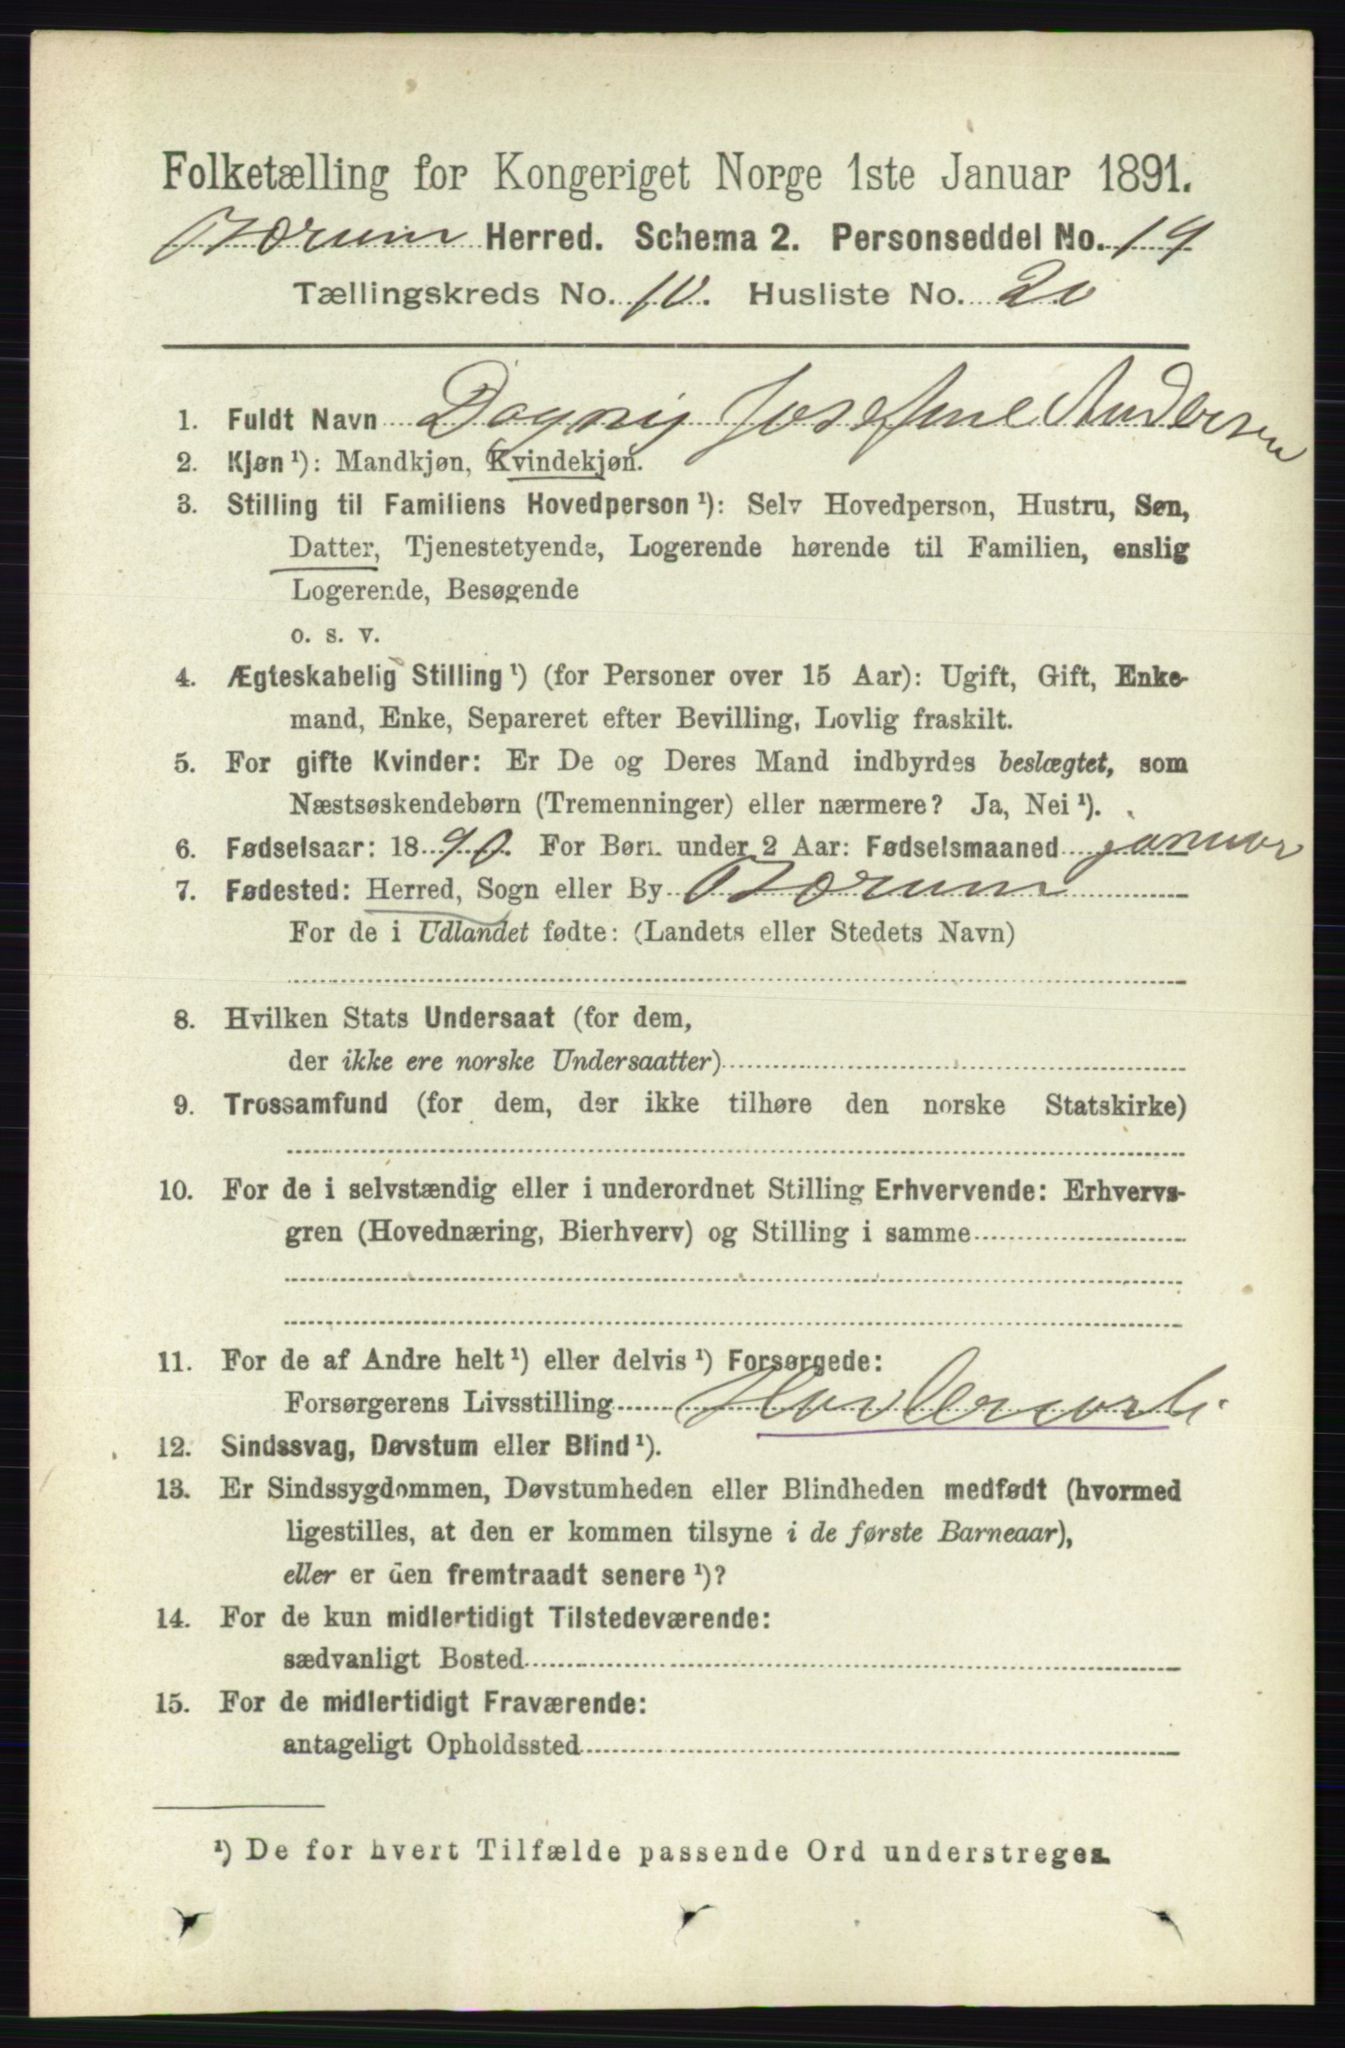 Folketælling for Kongeriget Norge 1ste Januar 1891.
Bærum Herred. Schema 2. Personseddel No. 19
Tællingskreds No. 10. Husliste No. 20
1. Fuldt Navn Dagny Josefine Andersen
2. Kjøn ¹): Mandkjøn, Kvindekjøn.
3. Stilling til Familiens Hovedperson ¹): Selv Hovedperson, Hustru, Søn,
Datter, Tjenestetyende, Logerende hørende til Familien, enslig
Logerende, Besøgende
o. s. v.
4. Ægteskabelig Stilling ¹) (for Personer over 15 Aar): Ugift, Gift, Enke-
mand, Enke, Separeret efter Bevilling, Lovlig fraskilt.
5. For gifte Kvinder: Er De og Deres Mand indbyrdes beslægtet, som
Næstsøskendebørn (Tremenninger) eller nærmere? Ja, Nei ¹).
6. Fødselsaar: 1890. For Børn under 2 Aar: Fødselsmaaned januar
7. Fødested: Herred, Sogn eller By Bærum
For de i Udlandet fødte: (Landets eller Stedets Navn)
8. Hvilken Stats Undersaat (for dem,
der ikke ere norske Undersaatter)
9. Trossamfund (for dem, der ikke tilhøre den norske Statskirke)
10. For de i selvstændig eller i underordnet Stilling Erhvervende: Erhvervs-
gren (Hovednæring, Bierhverv) og Stilling i samme
11. For de af Andre helt ¹) eller delvis ¹) Forsørgede:
Forsørgerens Livsstilling
12. Sindssvag, Døvstum eller Blind ¹).
13. Er Sindssygdommen, Døvstumheden eller Blindheden medfødt (hvormed
ligestilles, at den er kommen tilsyne i de første Barneaar),
eller er den fremtraadt senere ¹)?
14. For de kun midlertidigt Tilstedeværende:
sædvanligt Bosted
15. For de midlertidigt Fraværende:
antageligt Opholdssted
¹) De for hvert Tilfælde passende Ord understreges.